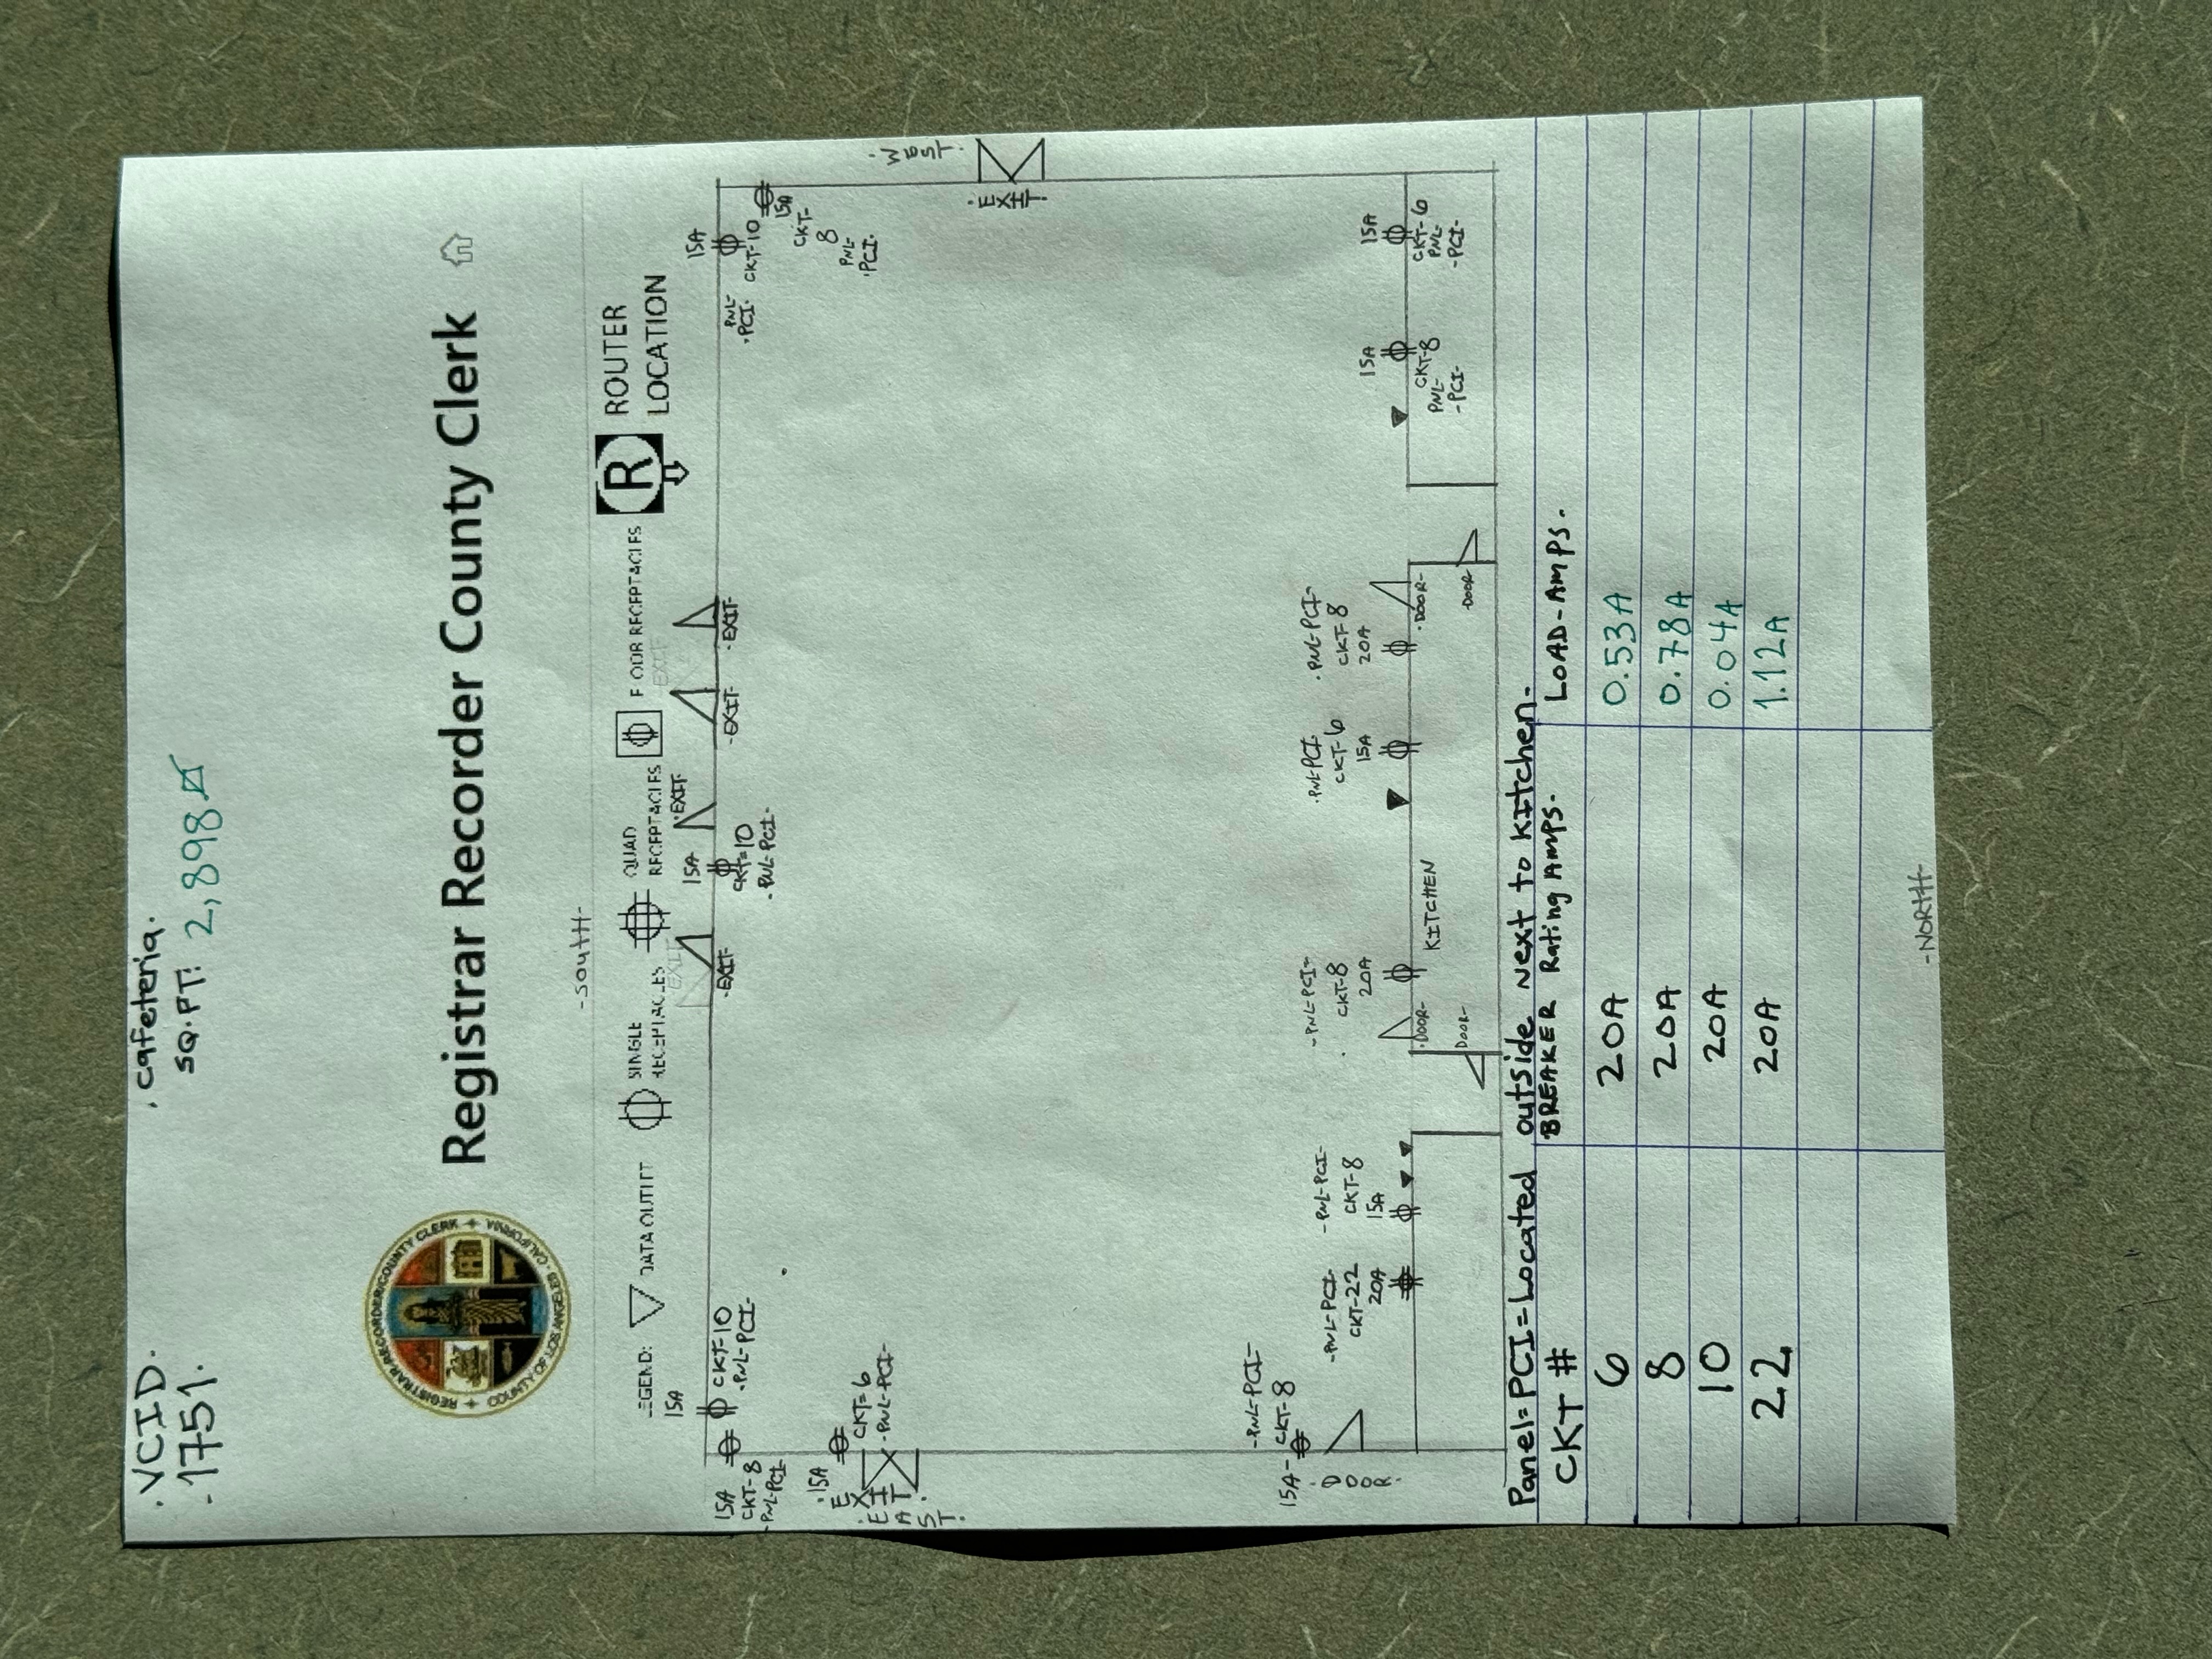 .VCID.
.1751.
.cafeteria.
SQ.FT: 2,898
REGISTRAR-RECORDER/COUNTY CLERK
COUNTY OF LOS ANGELES - CALIFORNIA
Registrar Recorder County Clerk
-SOUTH-
LEGEND:
DATA OUTLET
SINGLE
RECEPTACLES
QUAD
RECEPTACLES
FLOOR RECEPTACLES
R
ROUTER
LOCATION
EXIT
EXIT
15A
CKT-10
-PNL-PCI-
15A
CKT-8
-PNL-PCI-
-EXIT-
15A
CKT=10
-PNL-PCI-
.EXIT-
-EXIT-
-EXIT-
15A
CKT-10
PNL-
.PCI-
15A
CKT-
8
PNL-
.PCI-
.WEST.
.EXIT.
.15A
CKT=6
.PNL-PCI-
EXIT
.EAST.
-PNL-PCI-
CKT-8
15A-
.DOOR-
-PNL-PCI-
CKT-22
20A
-PNL-PCI-
CKT-8
15A
-PNL-PCI-
CKT-8
20A
.DOOR-
DOOR-
KITCHEN
.PNL-PCI-
CKT-6
15A
.PNL-PCI-
CKT-8
20A
.DOOR-
-DOOR-
15A
CKT-8
PNL-
-PCI-
15A
CKT-6
PNL-
-PCI-
Panel=PCI=Located outside next to Kitchen-
CKT # BREAKER Rating AMPS. LOAD-AMPS.
6 20A 0.53A
8 20A 0.78A
10 20A 0.04A
22 20A 1.12A
-NORTH-